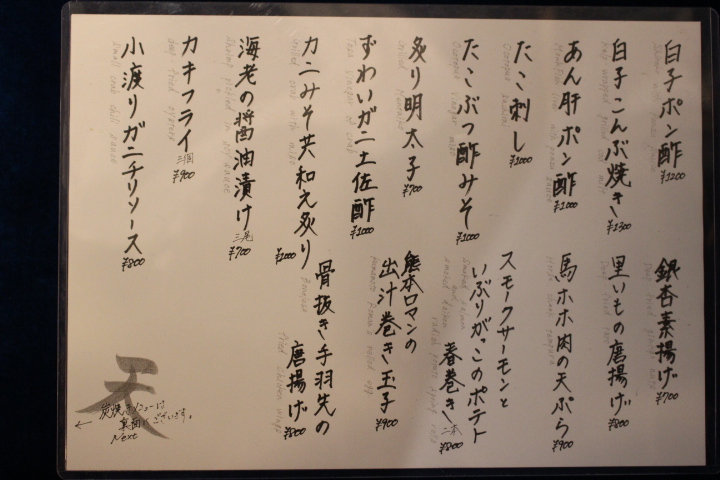 白子ポン酢 ¥1200
白子こんぶ焼き ¥1300
あん肝ポン酢 ¥1000
たこ刺し ¥1000
たこぶつ酢みそ ¥1000
炙り明太子 ¥700
ずわいガニ土佐酢 ¥1000
カニみそ共和え炙り ¥1000
海老の醤油漬け 三尾 ¥700
カキフライ 三個 ¥900
小渡りガニチリソース ¥800
銀杏素揚げ ¥700
里いもの唐揚げ ¥800
馬ホホ肉の天ぷら ¥900
スモークサーモンと
いぶりがっこのポテト
春巻き 二本 ¥800
熊本ロマンの
出汁巻き玉子 ¥900
骨抜き手羽先の
唐揚げ ¥800
天
炭焼きメニューは
裏面にございます。
← Next